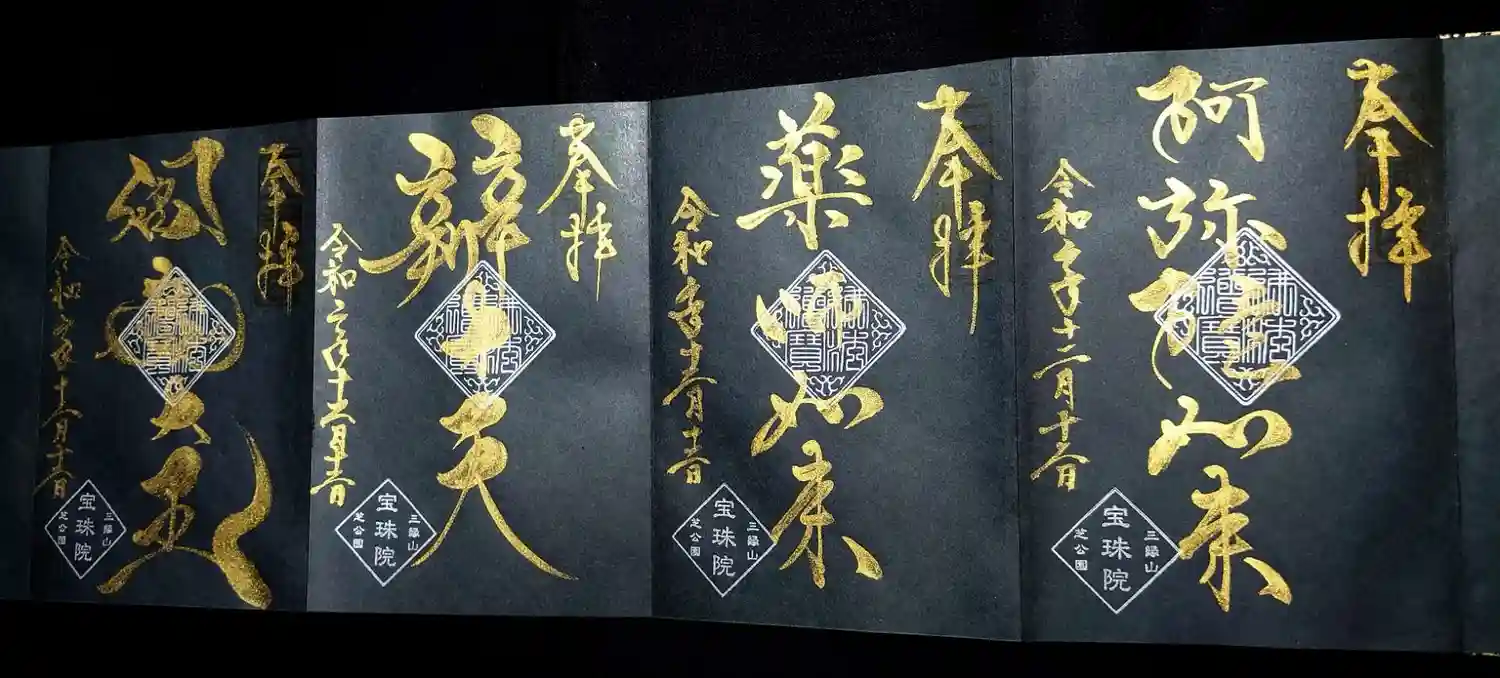 奉拝
阿弥陀如来
令和二年十二月十三日
三縁山
宝珠院
芝公園
奉拝
薬師如来
令和二年十二月十三日
三縁山
宝珠院
芝公園
奉拝
辨才天
令和二年十二月十三日
三縁山
宝珠院
芝公園
奉拝
閻魔大王
令和二年十二月十三日
三縁山
宝珠院
芝公園